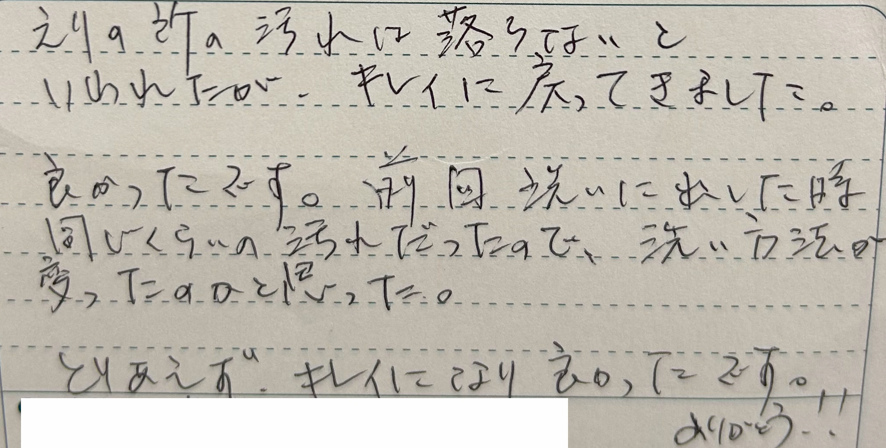 えりの所の汚れは落ちないと
いわれたが、キレイに戻ってきました。
良かったです。前回洗いに出した時
同じくらいの汚れだったので、洗い方法が
変ったのかと思った。
とりあえず、キレイになり良かったです。
ありがとう!!